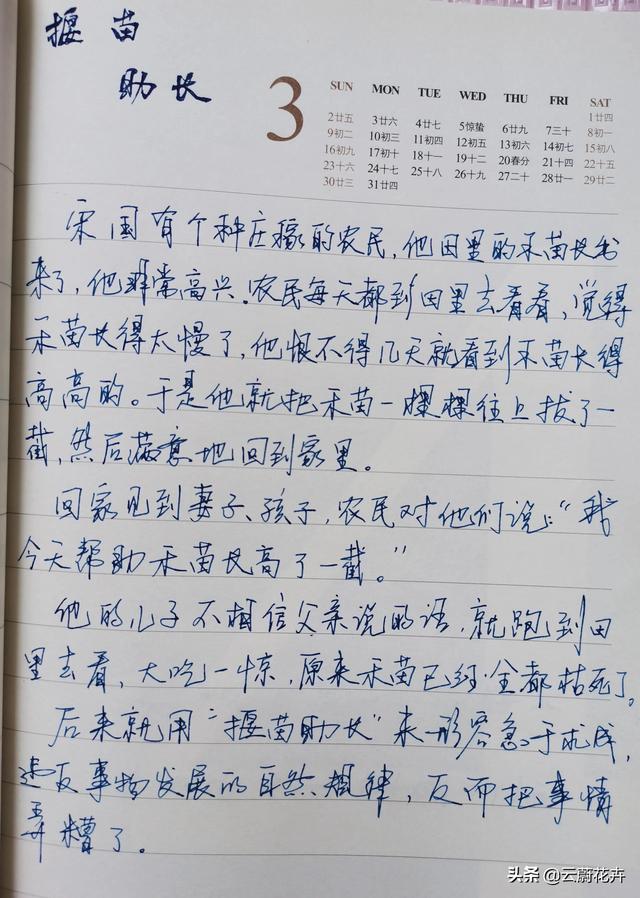 揠苗
助长
3
SUN MON TUE WED THU FRI SAT
1廿四
2廿五 3廿六 4廿七 5惊蛰 6廿九 7三十 8初一
9初二 10初三 11初四 12初五 13初六 14初七 15初八
16初九 17初十 18十一 19十二 20春分 21十四 22十五
23十六 24十七 25十八 26十九 27二十 28廿一 29廿二
30廿三 31廿四
宋国有个种庄稼的农民,他田里的禾苗长出
来了,他非常高兴。农民每天都到田里去看看,觉得
禾苗长得太慢了,他恨不得几天就看到禾苗长得
高高的。于是他就把禾苗一棵棵往上拔了一
截,然后满意地回到家里。
回家见到妻子、孩子,农民对他们说:“我
今天帮助禾苗长高了一截。”
他的儿子不相信父亲说的话,就跑到田
里去看,大吃一惊,原来禾苗已经全都枯死了。
后来就用“揠苗助长”来形容急于求成,
违反事物发展的自然规律,反而把事情
弄糟了。
头条@云蔚花卉